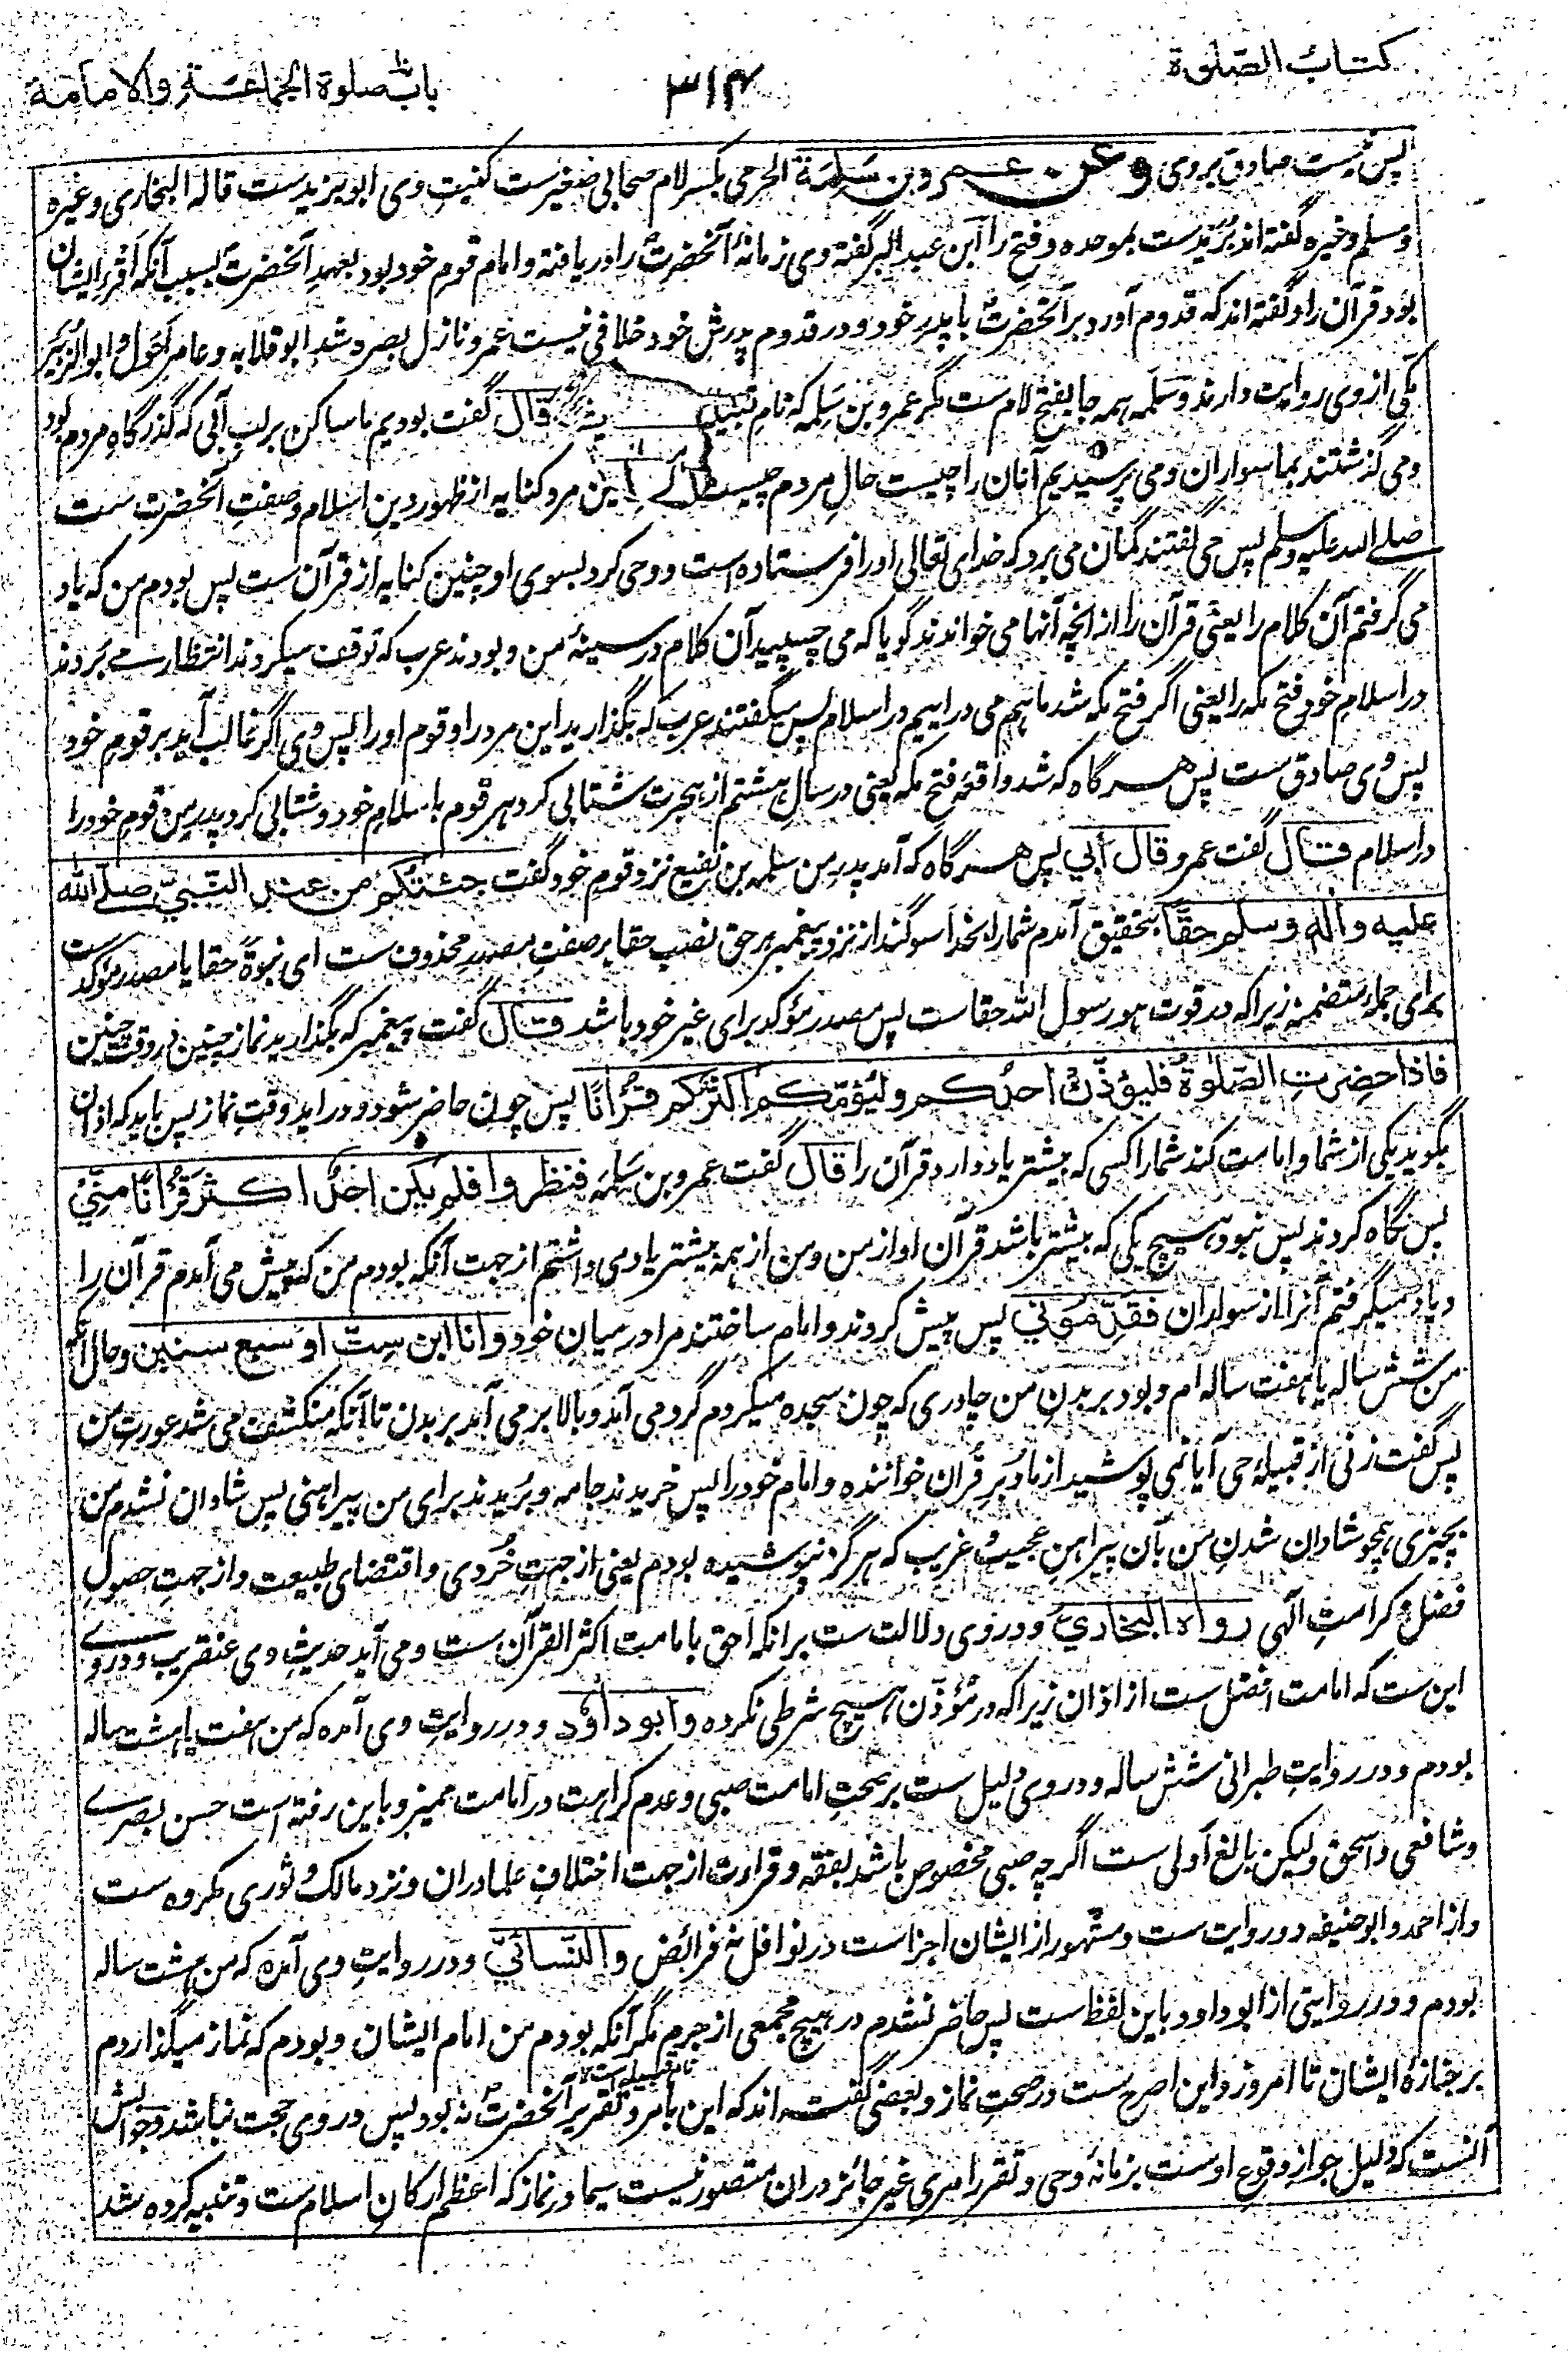 کتاب الصلوة
۳۱۴
باب صلوة الجماعة والامامة
پس نیست صادق بروی وعن عمرو بن سلمة الجرمی بکسر لام صحابی صغیرست کنیت وی ابو یزیدست قاله البخاری وغیره
ومسلم وغیره گفته اند بُرَیدست بموحده وفتح را ابن عبد البر گفته وی زمانهٔ آنحضرت را دریافته وامام قوم خود بود بعهد آنحضرت بسبب آنکه اقرء ایشان
بود قرآن را وگفته اند که قدوم آورد بر آنحضرت با پدر خود ودر قدوم پدرش خود خلافی نیست عمرو نازل بصره شد ابو قلابه وعامر احول وابو الزبیر
مکی از وی روایت دارند وسلمه همه جا بفتح لام ست مگر عمرو بن سلمه که نام قبیله قال گفت بودیم ما ساکن بر لب آبی که گذرگاه مردم بود
ومی گذشتند بما سواران ومی پرسیدیم آنان را چیست حال مردم چیست این مرد کنایه از ظهور دین اسلام وصفت آنحضرت ست
صلے الله علیه وسلم پس می گفتند گمان می برد که خدای تعالی او را فرستاده است ووحی کرد بسوی او چنین کنایه از قرآن ست پس بودم من که یاد
می گرفتم آن کلام را یعنی قرآن را از انچه آنها می خواندند گویا که می چسپید آن کلام در سینهٔ من وبودند عرب که توقف میکردند انتظار مے بردند
در اسلام خود فتح مکه را یعنی اگر فتح مکه شد ما هم می در اییم در اسلام پس میگفتند عرب که بگذارید این مرد را وقوم او را پس وی اگر غالب آید بر قوم خود
پس وی صادق ست پس هرگاه که شد واقعهٔ فتح مکه یعنی در سال هشتم از هجرت شتابی کرد هر قوم باسلام خود وشتابی کرد پدر من قوم خود را
در اسلام قال گفت عمرو قال أبي پس هرگاه که آمد پدر من سلمه بن نفیع نزد قوم خود گفت جئتكم من عند النبي صلے الله
عليه وآله وسلم حقًا بتحقیق آمدم شما را بخدا سوگند از نزد پیغمبر بر حق نصب حقا بر صفت مصدر محذوف ست ای نبوةً حقا یا مصدر مؤکد ست
برای جملهٔ متضمنه زیرا که در قوت هو رسول الله حقاست پس مصدر مؤکد برای غیر خود باشد قال گفت پیغمبر که بگذارید نماز چنین در وقت چنین
فاذا حضرت الصلوة فليؤذن احدكم وليؤمكم اكثركم قرأنًا پس چون حاضر شود ودر اید وقت نماز پس باید که اذان
بگوید یکی از شما وامامت کند شما را کسی که بیشتر یاد دارد قرآن را قال گفت عمرو بن سلمه فنظروا فلم يكن احدٌ اكثر قرأنًا مني
پس نگاه کردند پس نبود هیچ یکی که بیشتر باشد قرآن او از من ومن از همه بیشتر یاد می داشتم از جهت آنکه بودم من که پیش می آمدم قرآن را
ویاد میگرفتم آنرا از سواران فقدموني پس پیش کردند وامام ساختند مرا در میان خود وانا ابن ست او سبع سنين وحال آنکه
من شش ساله یا هفت ساله ام وبود بر بدن من چادری که چون سجده میکردم گرد می آمد وبالا بر می آمد بر بدن تا آنکه منکشف می شد عورت من
پس گفت زنی از قبیلهٔ حی آیا نمی پوشید از ما دُبرِ قرآن خواننده وامام خود را پس خریدند جامه وبریدند برای من پیراهنی پس شادان نشدم من
بچیزی همچو شادان شدن من بآن پیراهن عجیب وغریب که هرگز نپوشیده بودم یعنی از جهت خُردی واقتضای طبیعت واز جهت حصول
فضل وکرامت الهی رواه البخاري ودر وی دلالت ست برانکه احق بامامت اکثر القرآن ست ومی آید حدیث وی عنقریب ودروے
این ست که امامت افضل ست از اذان زیرا که در مؤذن هیچ شرطی نکرده وابو داود ودر روایت وی آمده که من هفت یا هشت ساله
بودم ودر روایت طبرانی شش ساله ودر وی دلیل ست بر صحت امامت صبی وعدم کراهت در امامت ممیز وباین رفته است حسن بصرے
وشافعی واسحق ولیکن بالغ اولی ست اگرچه صبی مخصوص باشد بفقه وقراءت از جهت اختلاف علما دران ونزد مالک وثوری مکروه ست
واز احمد وابو حنیفه دو روایت ست ومشهور از ایشان اجزاست در نوافل نه فرائض والنسائي ودر روایت وی آمده که من هشت ساله
بودم ودر روایتی از ابو داود باین لفظ ست پس حاضر نشدم در هیچ مجمعی از جرم مگر آنکه بودم من امام ایشان وبودم که نماز میگذاردم
نام قبیله است
بر جنازهٔ ایشان تا امروز واین اصرح ست در صحت نماز وبعضی گفته اند که این بامر وتقریر آنحضرت نه بود پس در وی حجت نباشد وجوابش
آنست که دلیل جواز وقوع اوست بزمانهٔ وحی وتقرر امری غیر جائز دران متصور نیست سیما در نماز که اعظم ارکان اسلام ست وتنبیه کرده شد